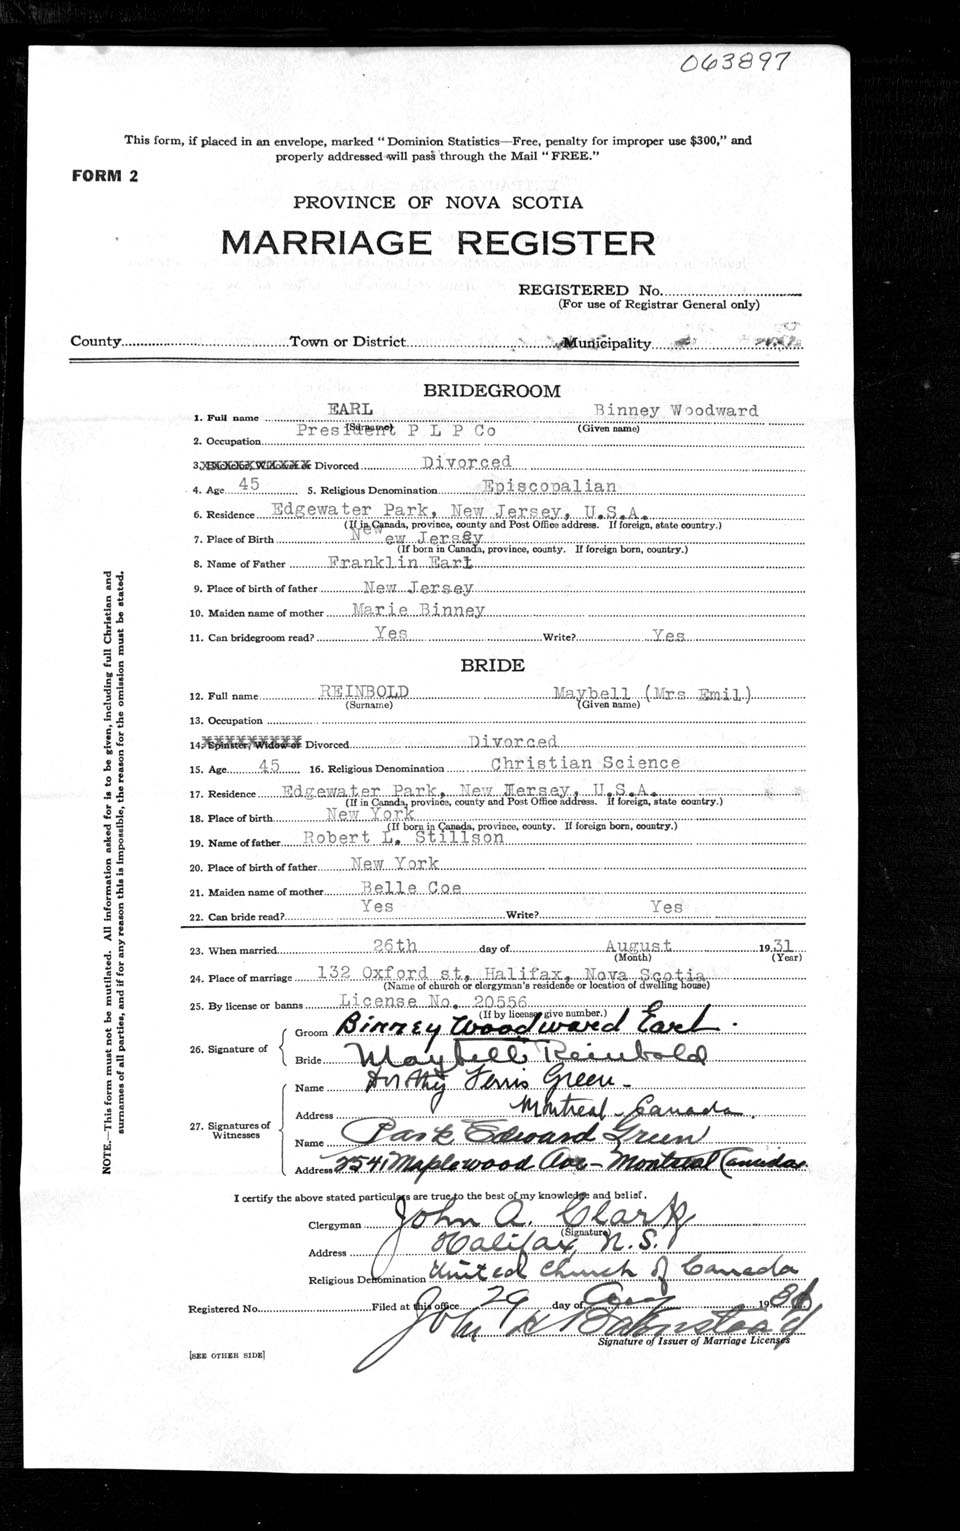 063897
This form, if placed in an envelope, marked "Dominion Statistics—Free, penalty for improper use $300," and
properly addressed will pass through the Mail "FREE."
FORM 2
PROVINCE OF NOVA SCOTIA
MARRIAGE REGISTER
REGISTERED No.
(For use of Registrar General only)
County Town or District Municipality
BRIDEGROOM
1. Full name EARL Binney Woodward
(Surname) (Given name)
2. Occupation President P L P Co
3. Bachelor, Widower or Divorced Divorced
4. Age 45 5. Religious Denomination Episcopalian
6. Residence Edgewater Park, New Jersey, U.S.A.
(If in Canada, province, county and Post Office address. If foreign, state country.)
7. Place of Birth New Jersey
(If born in Canada, province, county. If foreign born, country.)
8. Name of Father Franklin Earl
9. Place of birth of father New Jersey
10. Maiden name of mother Marie Binney
11. Can bridegroom read? Yes Write? Yes
BRIDE
12. Full name REINBOLD Maybell (Mrs Emil)
(Surname) (Given name)
13. Occupation
14. Spinster, Widow or Divorced Divorced
15. Age 45 16. Religious Denomination Christian Science
17. Residence Edgewater Park, New Jersey, U.S.A.
(If in Canada, province, county and Post Office address. If foreign, state country.)
18. Place of birth New York
(If born in Canada, province, county. If foreign born, country.)
19. Name of father Robert L. Stillson
20. Place of birth of father New York
21. Maiden name of mother Belle Coe
22. Can bride read? Yes Write? Yes
23. When married 26th day of August 1931
(Month) (Year)
24. Place of marriage 132 Oxford st, Halifax, Nova Scotia
(Name of church or clergyman's residence or location of dwelling house)
25. By license or banns License No. 20556
(If by license, give number.)
26. Signature of
Groom Binney Woodward Earl.
Bride Maybell Reinbold
27. Signatures of Witnesses
Name Dorothy Ferris Green
Address Montreal - Canada.
Name Park Edward Green
Address 2541 Maplewood Ave - Montreal Canada.
I certify the above stated particulars are true to the best of my knowledge and belief.
Clergyman John A. Clark
(Signature)
Address Halifax, N.S.
Religious Denomination United Church of Canada
Registered No. Filed at this office 29 day of Aug 193
John
Signature of Issuer of Marriage Licenses
[SEE OTHER SIDE]
NOTE.—This form must not be mutilated. All information asked for is to be given, including full Christian and
surnames of all parties, and if for any reason this is impossible, the reason for the omission must be stated.